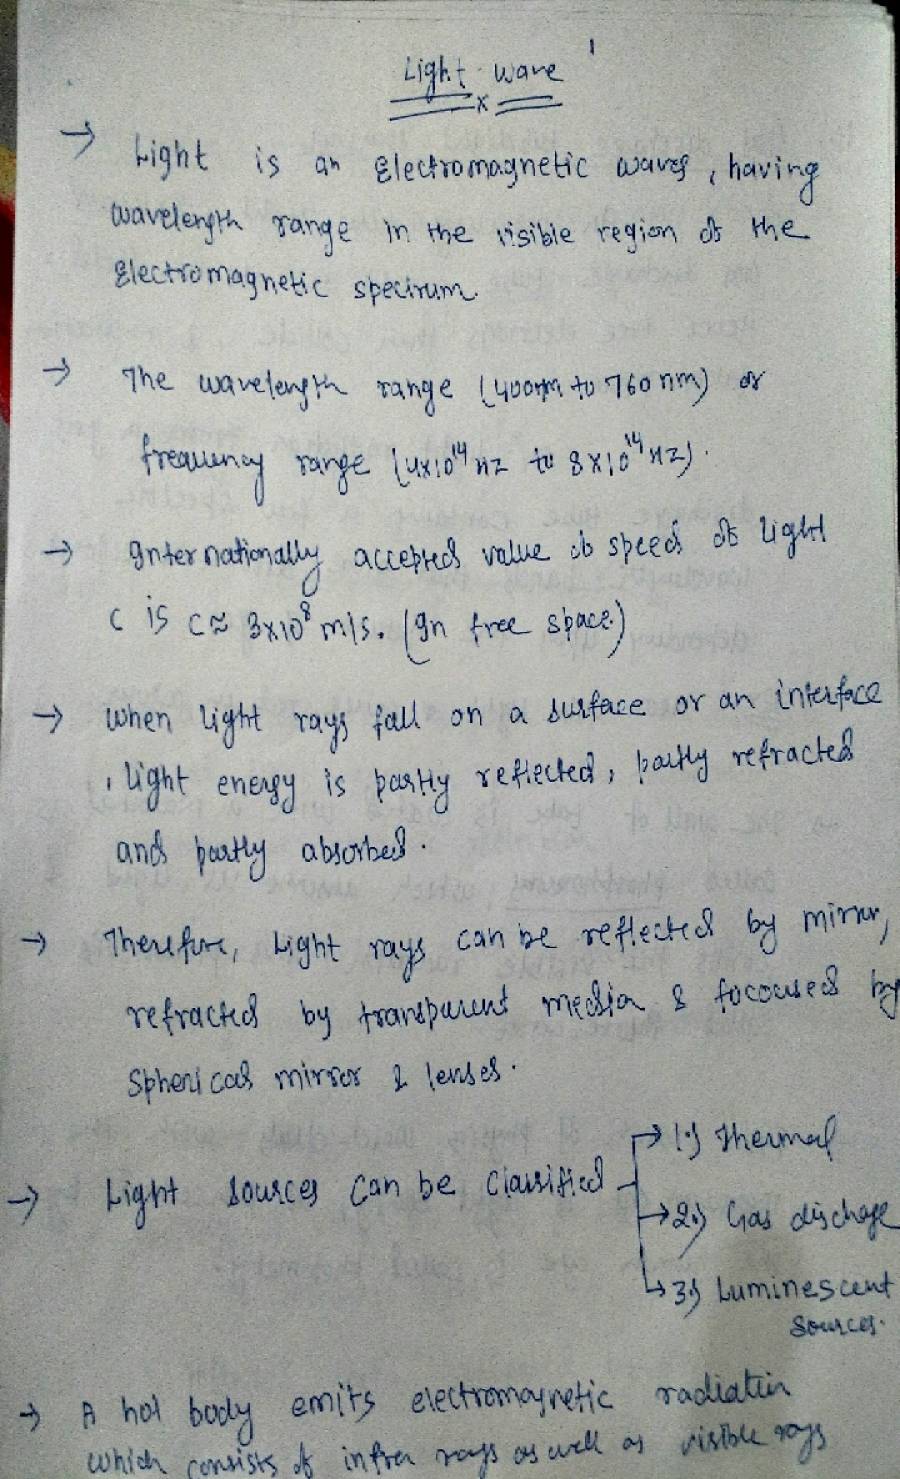 Light wave
→ Light is an Electromagnetic waves, having
wavelength range in the visible region of the
Electromagnetic spectrum.
→ The wavelength range (400nm to 760 nm) or
frequency range (4x10¹⁴ HZ to 8x10¹⁴ HZ).
→ Internationally accepted value of speed of light
c is c≈ 3x10⁸ m/s. (In free space.)
→ When light rays fall on a surface or an interface
, light energy is partly reflected, partly refracted
and partly absorbed.
→ Therefore, Light rays can be reflected by mirror,
refracted by transparent media & focoused by
Spherical mirror & lenses.
→ Light sources can be classified → 1.) Thermal
→ 2.) Gas dischage
→ 3.) Luminescent
Sources.
→ A hot body emits electromagnetic radiation
which consists of infra rays as well as visible rays